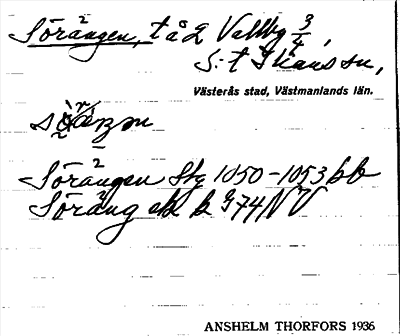 Sörängen, t å 2 Vallby 3/4,
S:t Ilians sn,
Västerås stad, Västmanlands län.
Sörängen Stg 1050-1053 bb
Söräng ek b 974 NV
ANSHELM THORFORS 1936